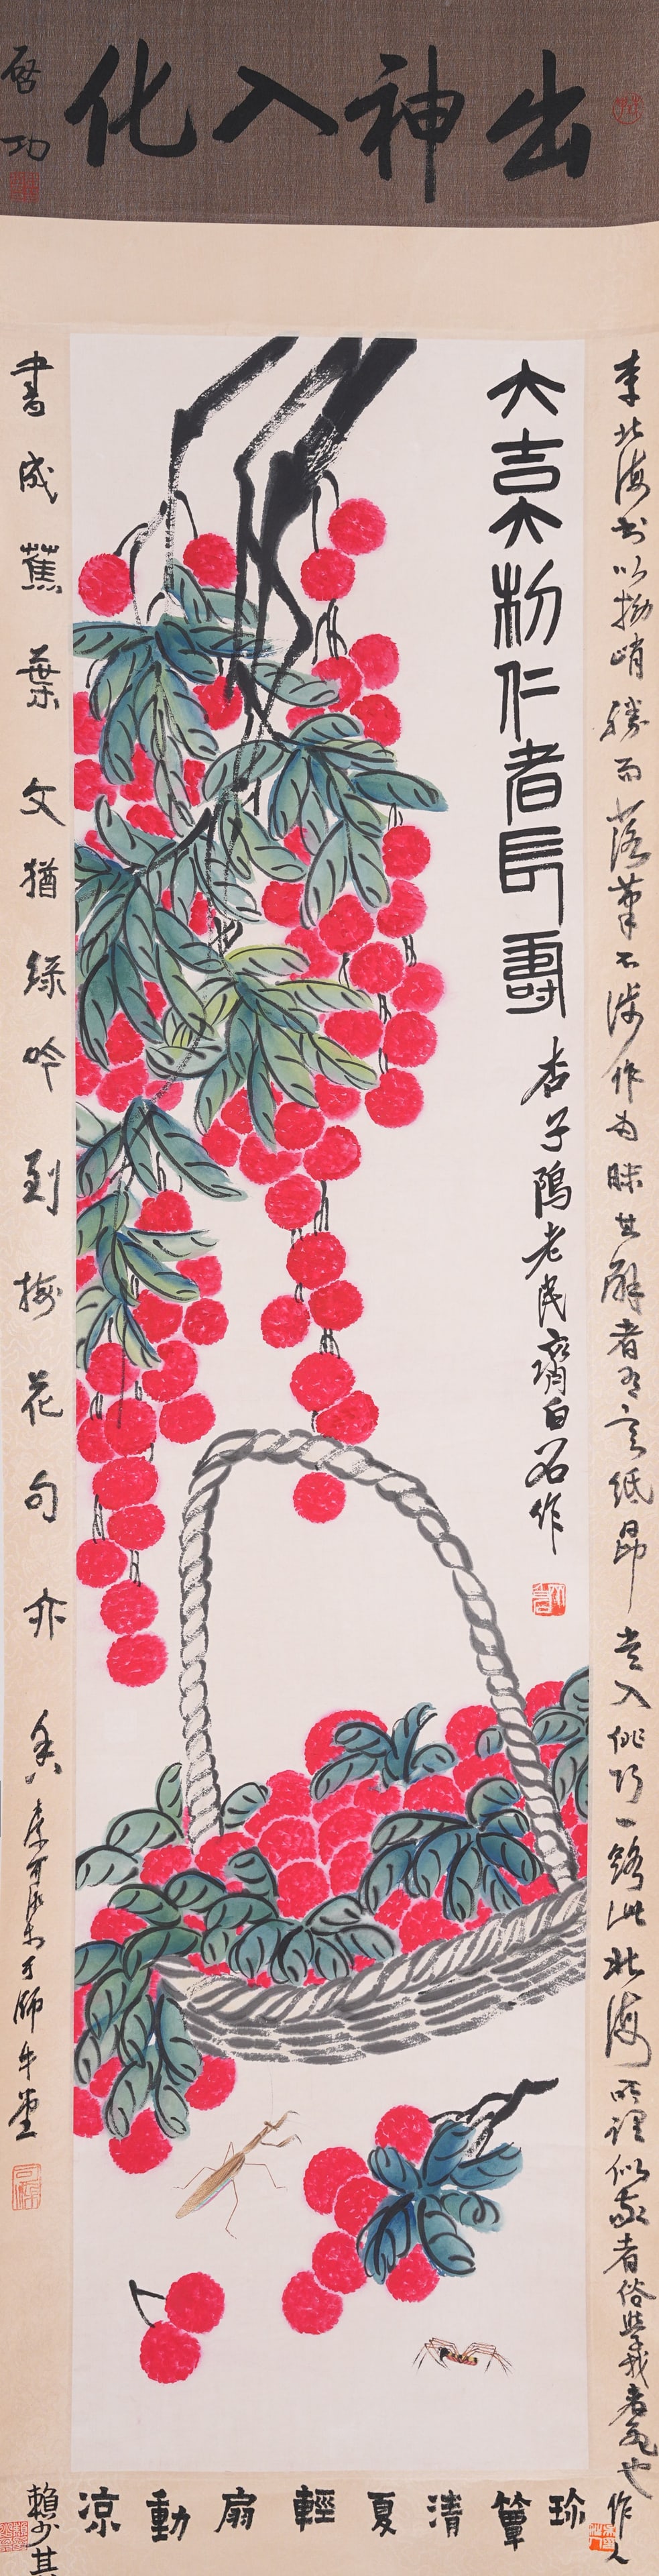 出神入化
启功
大吉大利仁者長壽
杏子隖老民齊白石作
李北海書以拗峭勝而落筆不涉作為昧其解者有言紙昂貴入佻巧一路此北海所謂似我者俗學我者死也作人
書成蕉葉文猶綠吟到梅花句亦香李可染東方師牛堂
珍簟清夏輕扇動涼
賴少其